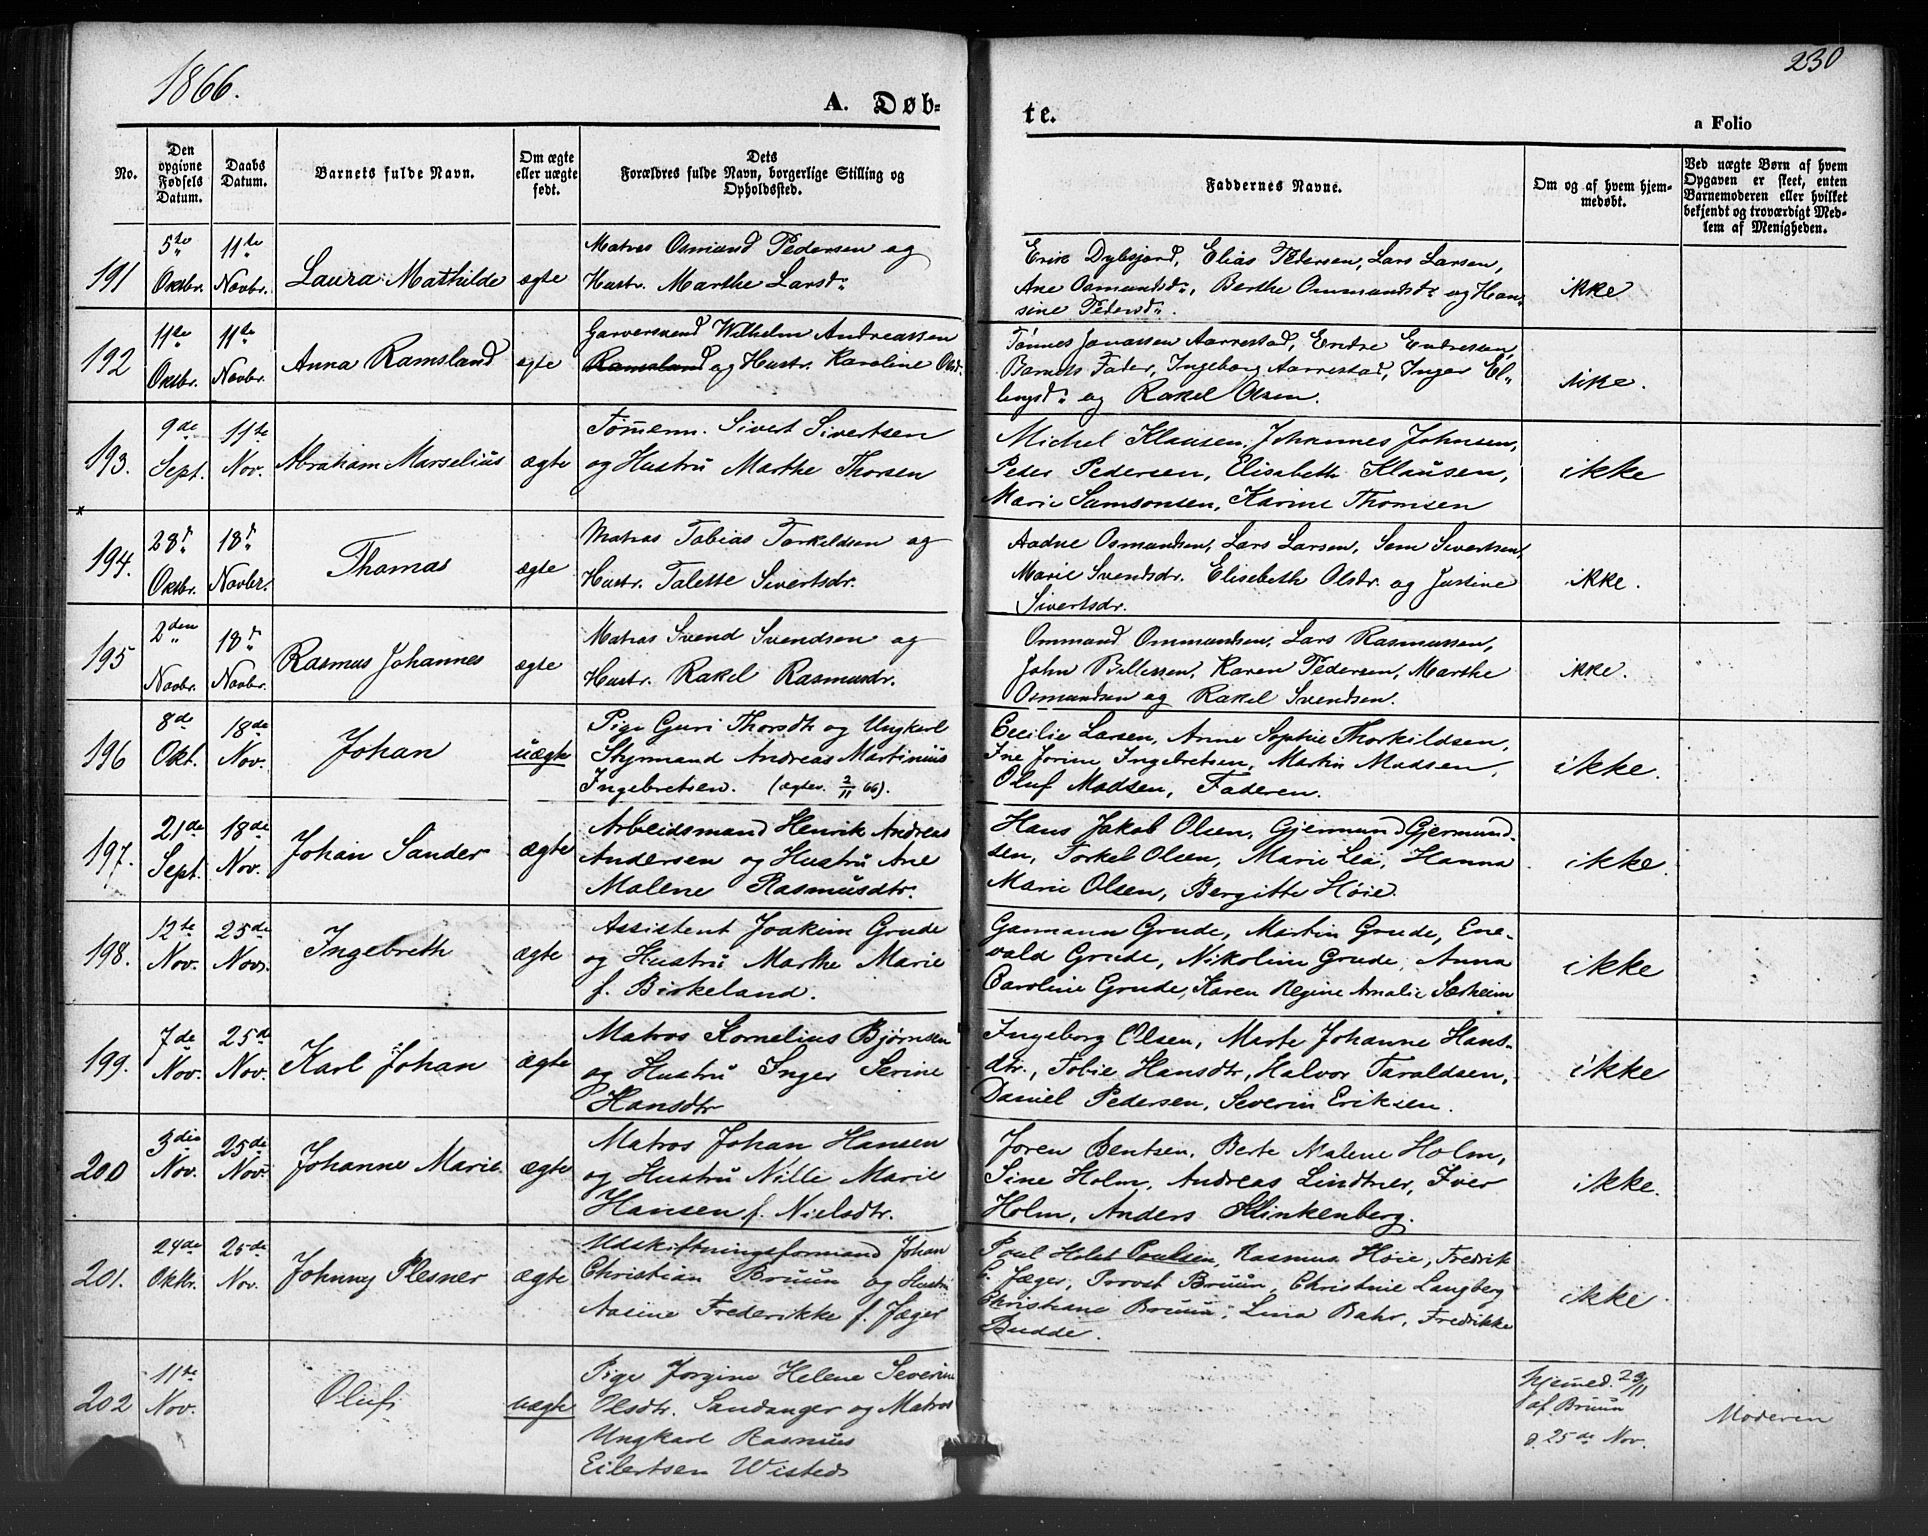 1866.
230
A. Døb-
te.
a Folio
No.
Den opgivne Fødsels Datum.
Daabs Datum.
Barnets fulde Navn.
Om ægte eller uægte født.
Dets
Forældres fulde Navn, borgerlige Stilling og
Opholdssted.
Faddernes Navne.
Om og af hvem hjem-
medøbt.
Ved uægte Børn af hvem
Opgaven er skeet, enten
Barnemoderen eller hvilket
bekjendt og troværdigt Med-
lem af Menigheden.
191
5te Oktbr.
11te Novbr.
Laura Mathilde
ægte
Matros Osmund Pedersen og
Hustr. Marthe Larsdr.
Eric Dybsjord, Elias Petersen, Lars Larsen,
Ane Osmundsdr., Berthe Ommundsdr. og Han-
sine Pedersdr.
ikke
192
11te Oktbr.
11te Novbr.
Anna Ramsland
ægte
Garversvend Wilhelm Andreassen
Ramsland og Hustr. Karoline Olsd.
Tønnes Jonassen Aarrestad, Endre Endresen,
Barnets Fader, Ingeborg Aarrestad, Inger El-
lingsdr. og Rakel Olsen.
ikke.
193.
9de Sept.
11te Nov.
Abraham Marselius
ægte
Tømmerm. Sivert Sivertsen
og Hustru Marthe Thorsen
Michel Klausen, Johannes Johnsen,
Peder Pedersen, Elisabeth Klausen,
Marie Samsonsen, Karine Thomsen
ikke
×
194.
28d Oktbr.
18d Novbr.
Thomas
ægte
Matros Tobias Torkildsen og
Hustr. Talette Sivertsdr.
Aadne Osmundsen, Lars Larsen, Sem Sivertsen,
Marie Svendsdr. Elisebeth Olsdr. og Justine
Sivertsdr.
ikke.
195
2den Novbr.
18d Novbr.
Rasmus Johannes
ægte
Matros Svend Svendsen og
Hustr. Rakel Rasmusdr.
Ommund Ommundsen, Lars Rasmussen,
John Pellessen, Karen Pedersen, Marthe
Osmundsen og Rakel Svendsen.
ikke.
196
8de Okt.
18de Nov.
Johan
uægte
Pige Guri Thorsdtr og Ungkarl
Styrmand Andreas Martinius
Ingebretsen. (ægtev. 2/11 66).
Cecilie Larsen, Anne Sophie Thorkildsen,
Ine Jorine Ingebretsen, Martin Madsen,
Oluf Madsen, Faderen.
ikke.
197.
21de Sept.
18de Nov.
Johan Sander
ægte
Arbeidsmand Henrik Andreas
Andersen og Hustru Ane
Malene Rasmusdtr.
Hans Jakob Olsen, Gjermund Gjermund-
sen, Torkel Olsen, Marie Lea, Hanna
Marie Olsen, Bergitte Høie.
ikke.
198.
12te Nov.
25de Nov.
Ingebreth
ægte
Assistent Joakim Grude
og Hustru Marthe Marie
f. Birkeland.
Garmann Grude, Martin Grude, Ene-
vald Grude, Nikoline Grude, Anna
Caroline Grude, Karen Regine Amalie Sætheim
ikke
199.
7de Nov.
25de Nov.
Karl Johan
ægte
Matros Kornelius Bjørnsen
og Hustru Inger Serine
Hansdtr
Ingeborg Olsen, Marte Johanne Hans-
dtr., Tobie Hansdtr, Halvor Taraldsen,
Daniel Pedersen, Severin Eriksen.
ikke
200
3die Nov.
25de Nov.
Johanne Marie.
ægte
Matros Johan Hansen
og Hustru Nille Marie
Hansen f. Nielsdtr.
Joren Bentsen, Berte Malene Holm,
Sine Holm, Andreas Lindtner, Iver
Holm, Anders Klinkenberg.
ikke.
201.
24de Oktbr.
25de Nov.
Johnny Plesner
ægte
Udskiftningsformand Johan
Christian Bruun og Hustru
Aasine Frederikke f. Jæger
Poul Holst Poulsen, Rasmus Høie, Fredrik
C. Jæger, Provst Bruun, Christine Langberg
Christiane Bruun, Lina Bahr, Fredrikke
Budde.
ikke
202
11te Nov.
Oluf
uægte
Pige Jorgine Helene Severine
Olsdtr. Sandanger og Matros
Ungkarl Rasmus
Eilertsen Wisted
hjemmed. 23/11
af Bruun
d. 25de Nov.
Moderen